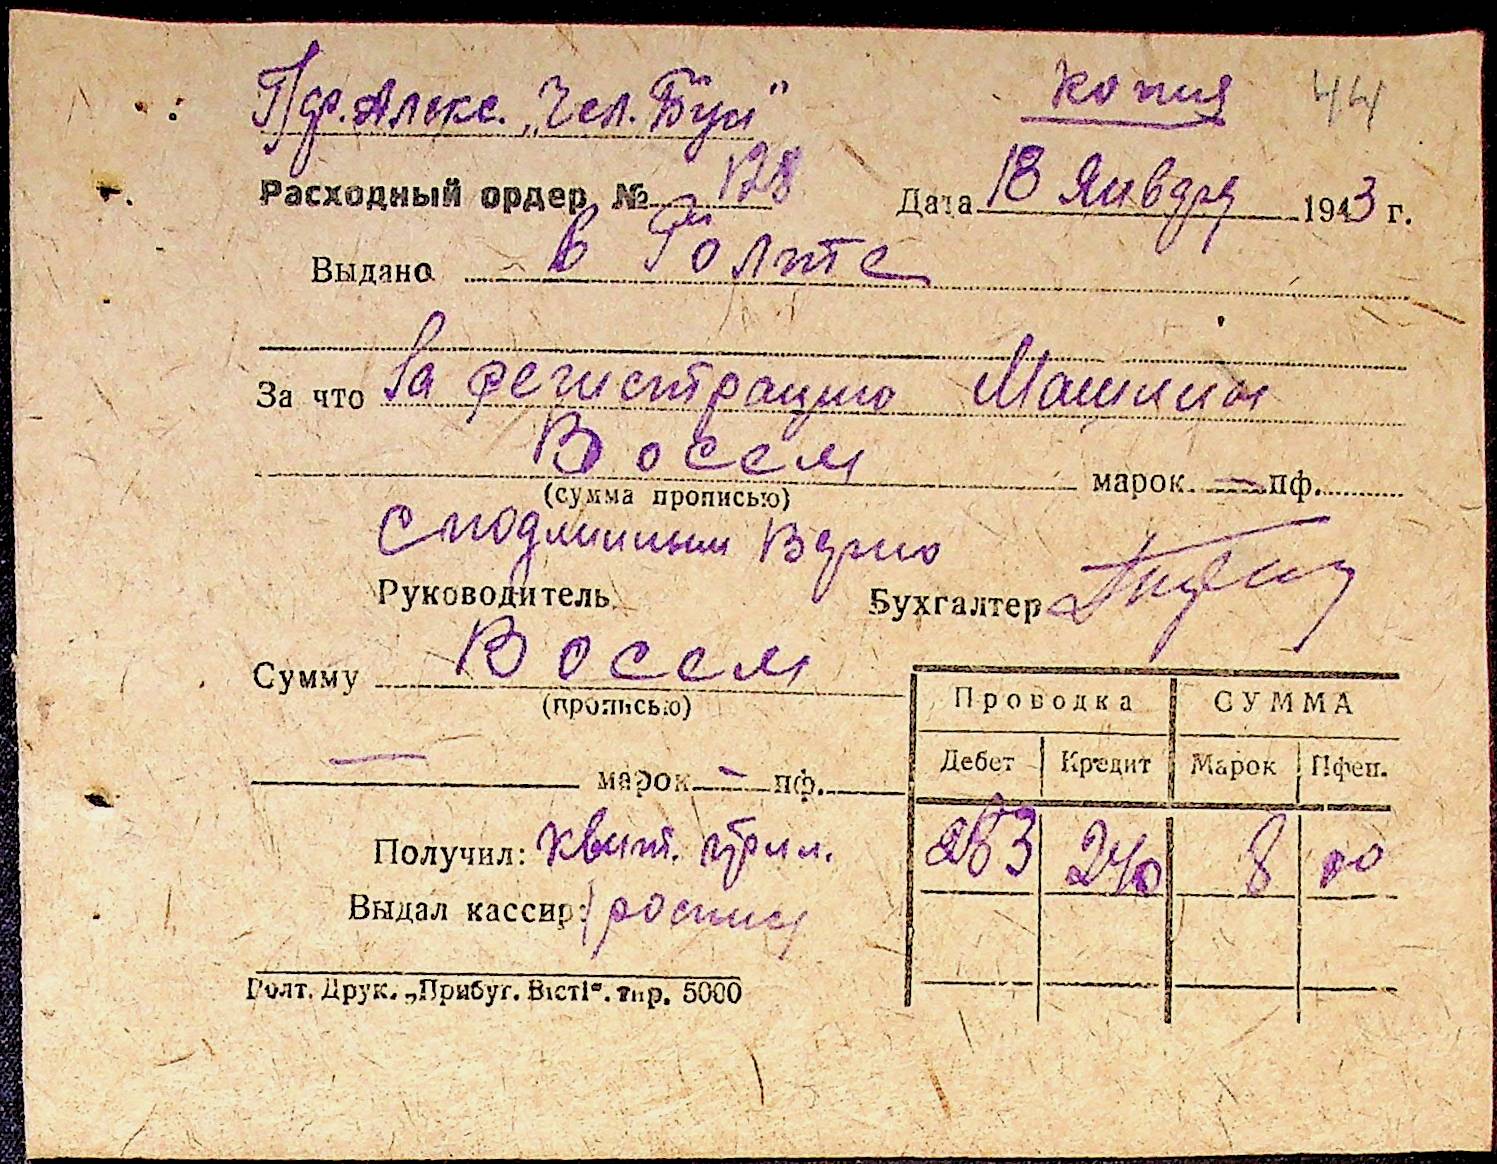 Пдр. Алекс. „Чел. Буи" копия 44
Расходный ордер № 128 Дата 18 Января 1943 г.
Выдано в Голте
За что За регистрацию Машины
Восем марок — пф.
(сумма прописью)
С подлинным Верно
Руководитель Бухгалтер
Сумму Восем
(прописью)
— марок — пф.
Проводка СУММА
Дебет Кредит Марок Пфен.
283 240 8 00
Получил: квит. прил.
Выдал кассир: роспись
Голт. Друк. „Прибуг. Вісті". тир. 5000